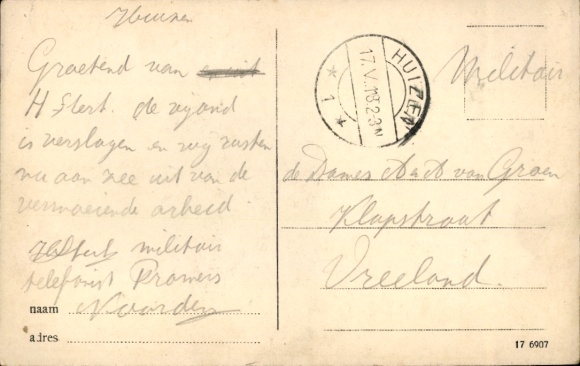 Huizen
Groetend van
H Stert. de vijand
is verslagen en wij rusten
nu aan zee uit van de
vermoeiende arbeid
HStert militair
telefonist
naam Naarden
adres
HUIZEN
17.V.18.2-3N
1
Militair
de Dames A & A van Groen
Klapstraat
Vreeland.
17 6907